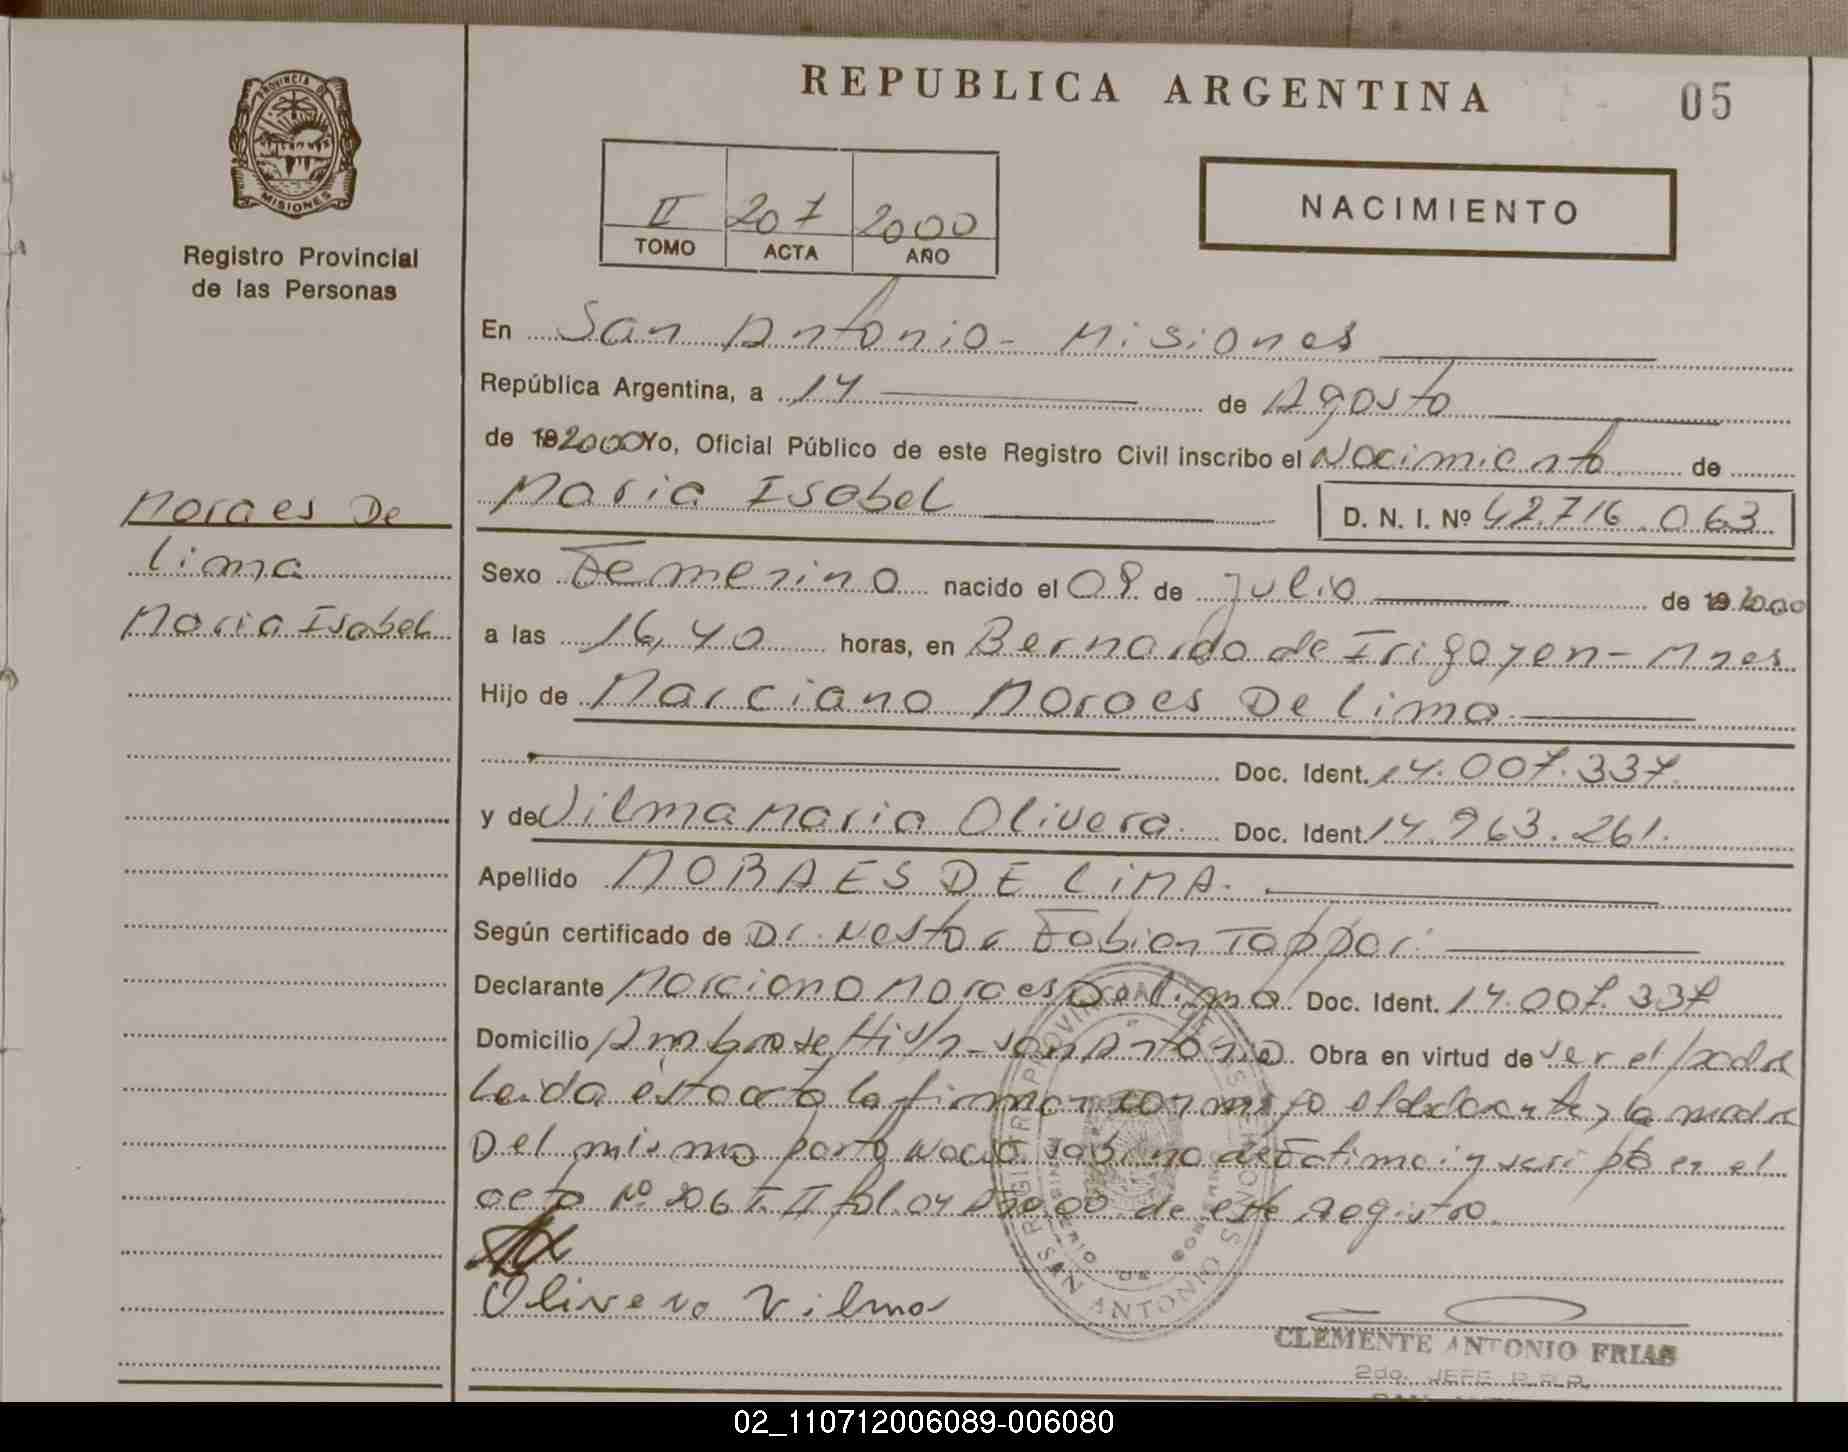 REPUBLICA ARGENTINA
05
PROVINCIA DE
MISIONES
Registro Provincial
de las Personas
II 207 2000
TOMO ACTA AÑO
NACIMIENTO
En San Antonio - Misiones
República Argentina, a 14 de Agosto
de 192000 Yo, Oficial Público de este Registro Civil inscribo el Nacimiento de
Maria Isabel
D. N. I. Nº 42.716.063
Moraes De
Lima
Maria Isabel
Sexo Femenino nacido el 09 de Julio de 192000
a las 16,40 horas, en Bernardo de Irigoyen - Mnes
Hijo de Marciano Moraes De Lima
Doc. Ident. 14.007.337.
y de Vilma Maria Olivera. Doc. Ident. 14.963.261.
Apellido MORAES DE LIMA.
Según certificado de Dr. Nestor Fabian Tappari
Declarante Marciano Moraes De Lima Doc. Ident. 14.007.337
Domicilio Ambrosetti s/n - San Antonio Obra en virtud de ser el padre
Leida ésta acta la firman conmigo el declarante y la madre
Del mismo parto nació Sabina de Fatima inscripta en el
acta Nº 206 T. II fol. 04 2000 de este Registro.
Olivera Vilma
REGISTRO PROVINCIAL DE LAS PERSONAS
SAN ANTONIO
CLEMENTE ANTONIO FRIAS
2do. JEFE R.P.P.
02_110712006089-006080